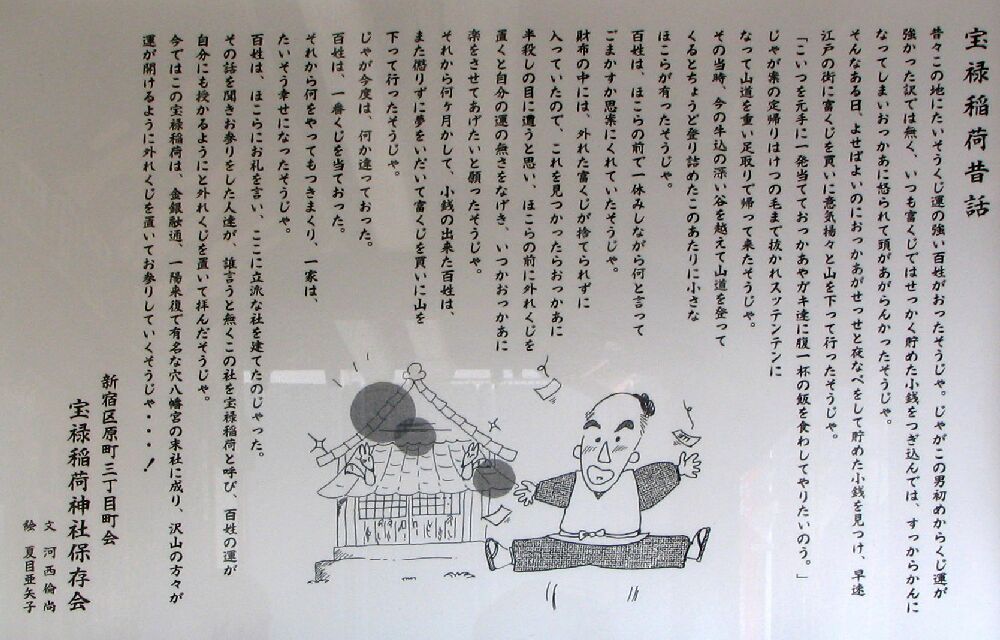 宝禄稲荷昔話
昔々この地にたいそうくじ運の強い百姓がおったそうじゃ。じゃがこの男初めからくじ運が
強かった訳では無く、いつも富くじではせっかく貯めた小銭をつぎ込んでは、すっからかんに
なってしまいおっかあに怒られて頭があがらんかったそうじゃ。
そんなある日、よせばよいのにおっかあがせっせと夜なべをして貯めた小銭を見つけ、早速
江戸の街に富くじを買いに意気揚々と山を下って行ったそうじゃ。
「こいつを元手に一発当てておっかあやガキ達に腹一杯の飯を食わしてやりたいのう。」
じゃが案の定帰りはけつの毛まで抜かれスッテンテンに
なって山道を重い足取りで帰って来たそうじゃ。
その当時、今の牛込の深い谷を越えて山道を登って
くるとちょうど登り詰めたこのあたりに小さな
ほこらが有ったそうじゃ。
百姓は、ほこらの前で一休みしながら何と言って
ごまかすか思案にくれていたそうじゃ。
財布の中には、外れた富くじが捨てられずに
入っていたので、これを見つかったらおっかあに
半殺しの目に遭うと思い、ほこらの前に外れくじを
置くと自分の運の無さをなげき、いつかおっかあに
楽をさせてあげたいと願ったそうじゃ。
それから何ヶ月かして、小銭の出来た百姓は、
また懲りずに夢をいだいて富くじを買いに山を
下って行ったそうじゃ。
じゃが今度は、何か違っておった。
百姓は、一番くじを当ておった。
それから何をやってもつきまくり、一家は、
たいそう幸せになったそうじゃ。
百姓は、ほこらにお礼を言い、ここに立派な社を建てたのじゃった。
その話を聞きお参りをした人達が、誰言うと無くこの社を宝禄稲荷と呼び、百姓の運が
自分にも授かるようにと外れくじを置いて拝んだそうじゃ。
今ではこの宝禄稲荷は、金銀融通、一陽来復で有名な穴八幡宮の末社に成り、沢山の方々が
運が開けるように外れくじを置いてお参りしていくそうじゃ・・・！
新宿区原町三丁目町会
宝禄稲荷神社保存会
文 河西倫尚
絵 夏目亜矢子